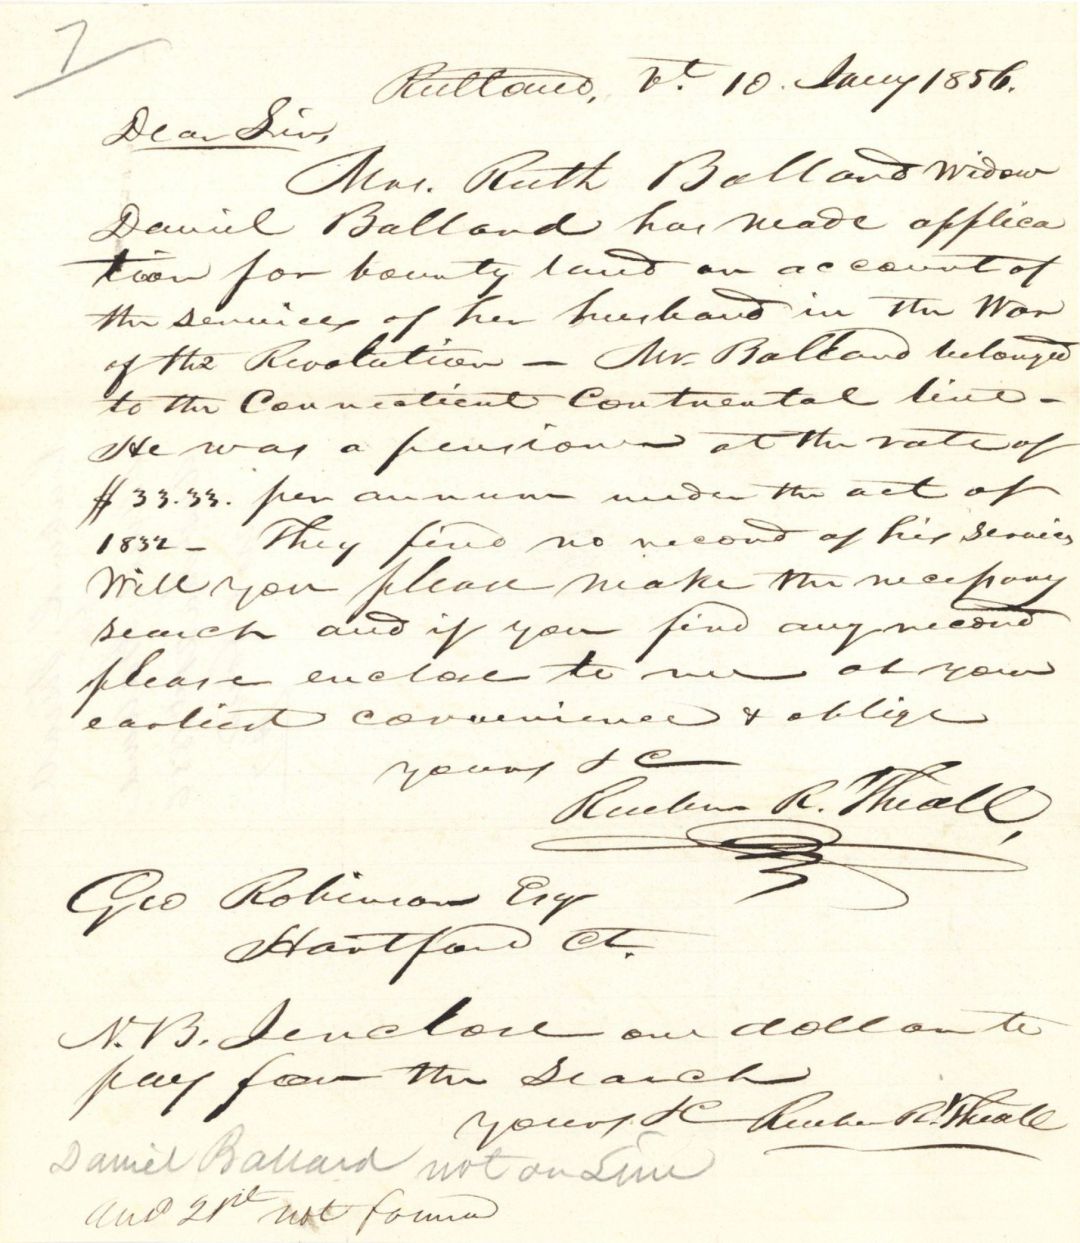 7
Rutland, Vt 10. Jany 1856.
Dear Sir,
Mrs. Ruth Ballard Widow
Daniel Ballard has made applica
tion for bounty land on account of
the services of her husband in the War
of the Revolution – Mr. Ballard belonged
to the Connecticut Continental line –
He was a pensioner at the rate of
$33.33. per annum under the act of
1832 – They find no record of his services
Will you please make the necessary
search and if you find any record
please enclose to me at your
earliest convenience & oblige
yours &c
Reuben R. Thrall,
Geo Robinson Esq
Hartford Ct.
N.B. I enclose one dollar to
pay for the search
yours &c Reuben R. Thrall
Daniel Ballard not on Line
Ansd 21st not found